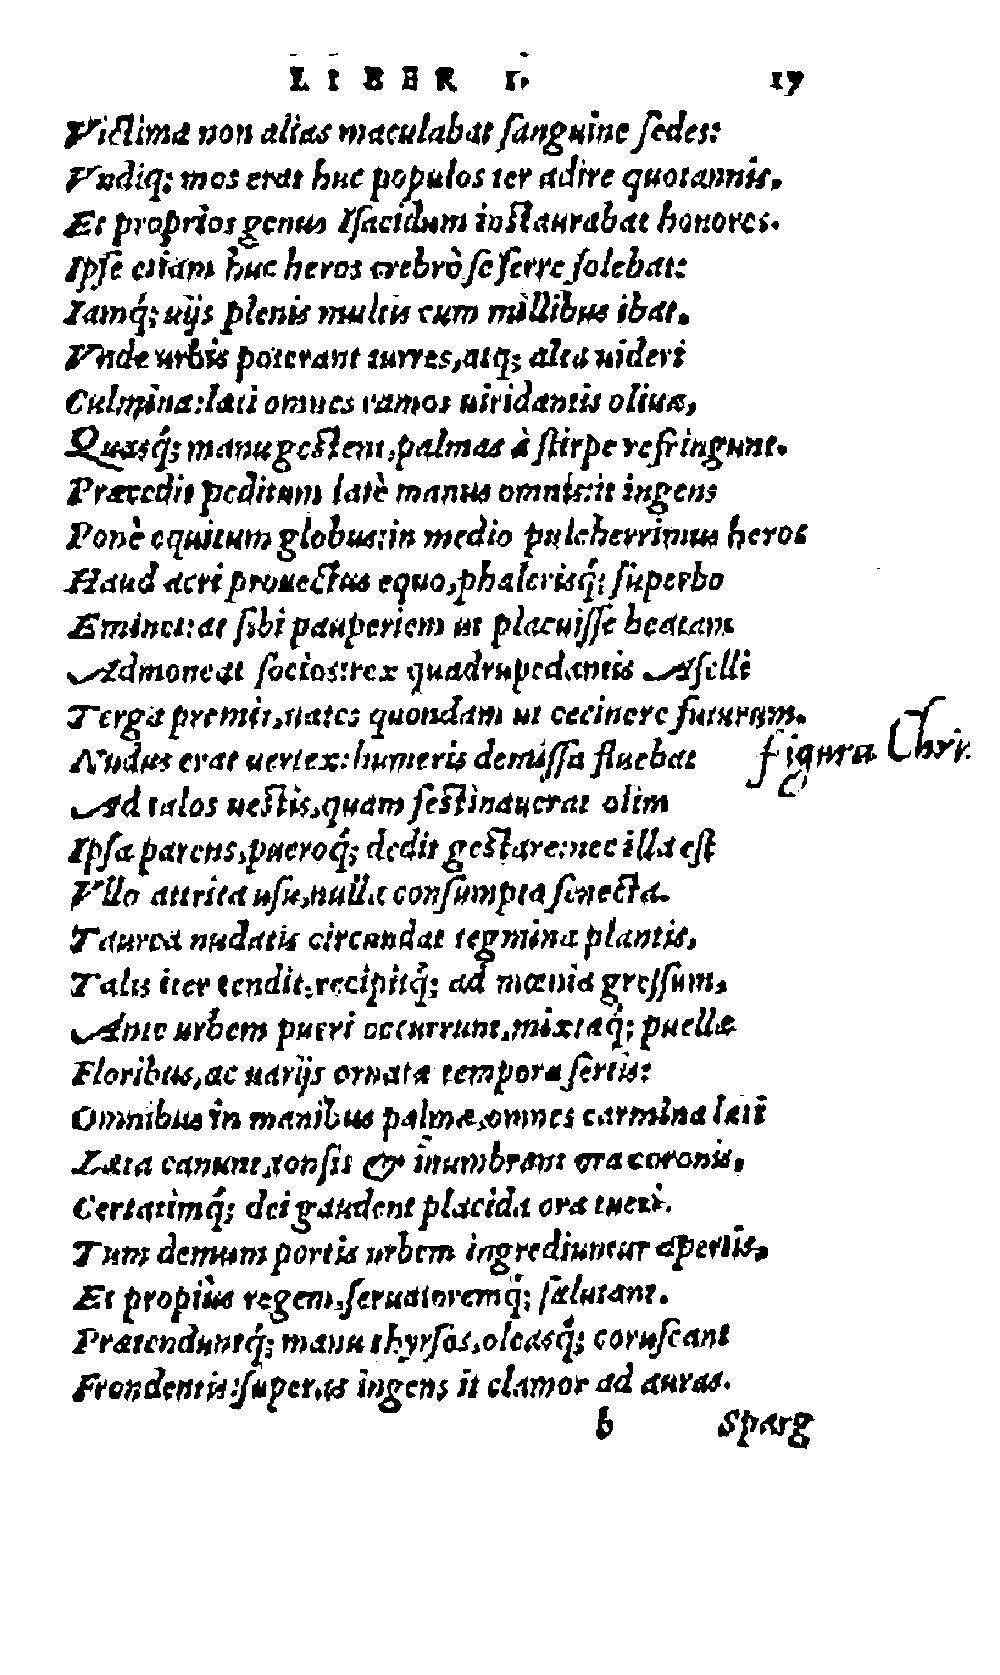 LIBER I. 17
Victima non alias maculabat ſanguine ſedes:
Vndiq; mos erat huc populos ter adire quotannis,
Et proprios genus Iſacidum inſtaurabat honores.
Ipſe etiam huc heros crebrò ſe ferre ſolebat:
Iamq́; uijs plenis multis cum millibus ibat.
Vnde urbis poterant turres, atq; alta uideri
Culmina: lati omnes ramos uiridantis oliuæ,
Quasq́; manu geſtent, palmas à ſtirpe refringunt.
Præcedit peditum latè manus omnis: it ingens
Ponè equitum globus: in medio pulcherrimus heros
Haud acri prouectus equo, phalerisq́; ſuperbo
Eminet: at ſibi pauperiem ut placuiſſe beatam
Admoneat ſocios: rex quadrupedantis Aſelli
Terga premit, uates quondam ut cecinere futurum.
Nudus erat uertex: humeris demiſſa fluebat
figura Chri.
Ad talos ueſtis, quam feſtinauerat olim
Ipſa parens, pueroq́; dedit geſtare: nec illa eſt
Vllo attrita uſu, nulla conſumpta ſenecta.
Taurea nudatis circundat tegmina plantis,
Talis iter tendit, recipitq́; ad mœnia greſſum,
Ante urbem pueri occurrunt, mixtaq́; puellæ
Floribus, ac uarijs ornatæ tempora ſertis:
Omnibus in manibus palmæ, omnes carmina læti
Læta canunt, tonſis & inumbrant ora coronis,
Certatimq́; dei gaudent placida ora tueri.
Tum demum portis urbem ingrediuntur apertis,
Et propiùs regem, ſeruatoremq́; ſalutant.
Prætenduntq́; manu thyrſos, oleasq́; coruſcant
Frondentis: ſuperas ingens it clamor ad auras.
b Sparg